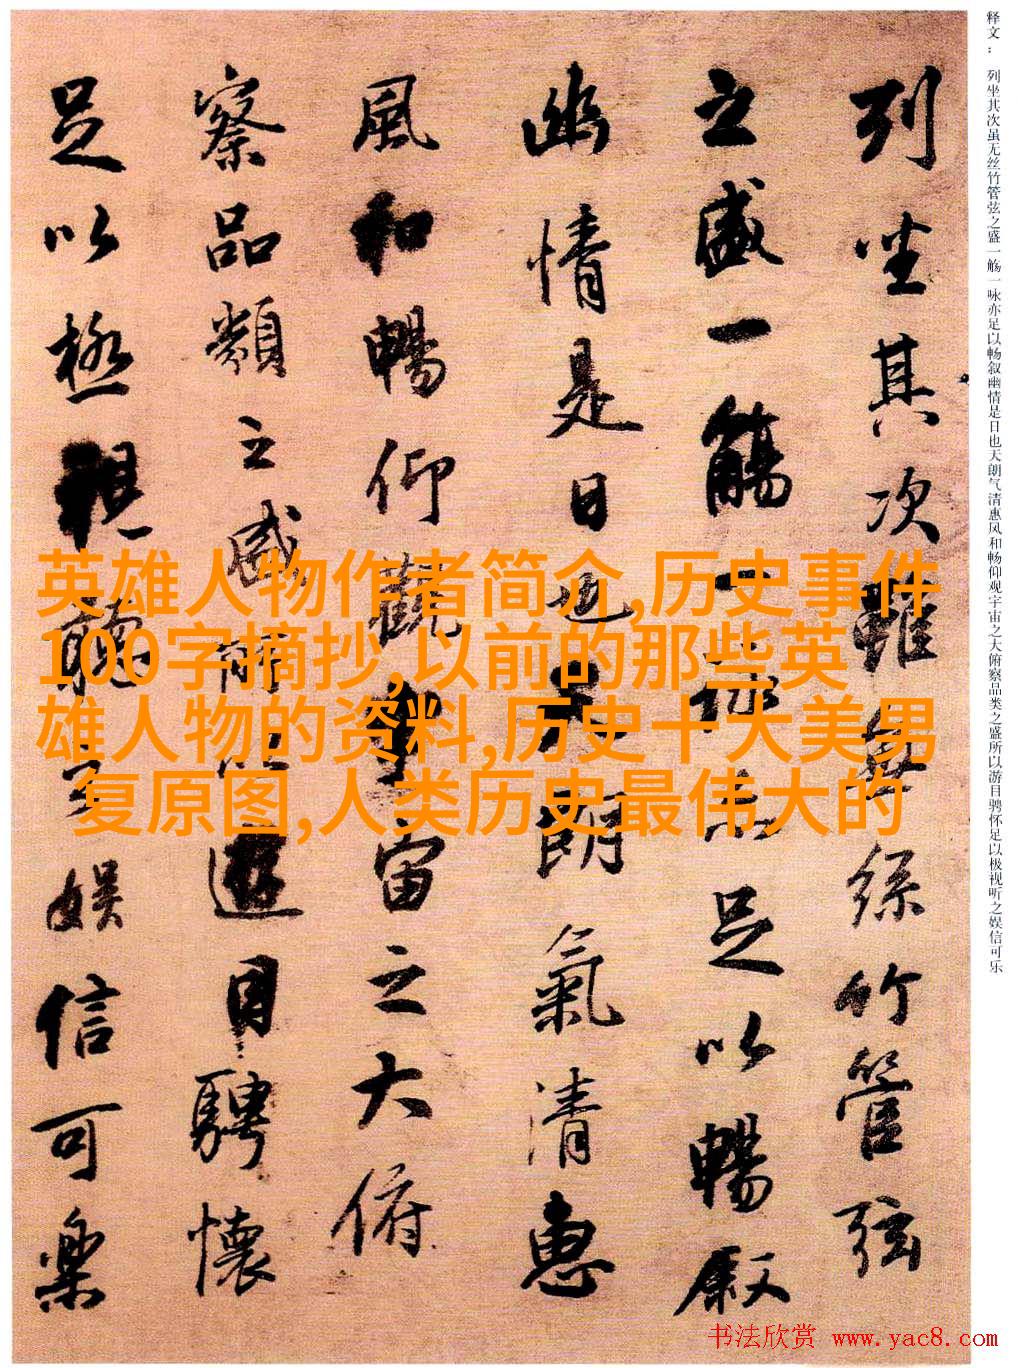 释文： 列坐其次虽无丝竹管弦之盛一觞一咏亦足以畅叙幽情是日也天朗气清惠风和畅仰观宇宙之大俯察品类之盛所以游目骋怀足以极视听之娱信可乐
列坐其次雖無絲竹管弦
之盛一觴一詠亦足以暢叙
幽情是日也天朗氣清惠
風和暢仰觀宇宙之大俯
察品類之盛所以遊目騁懷
足以極視聽之娛信可樂
英雄人物作者简介,历史事件
100字摘抄,以前的那些英
雄人物的资料,历史十大美男
复原图,人类历史最伟大的
书法欣赏 www.yac8.com